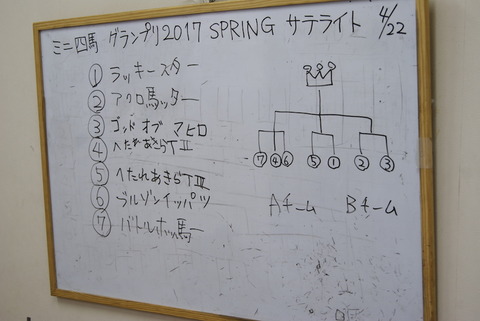 ミニ四馬 グランプリ2017 SPRING サテライト 4/22
① ラッキースター
② アクロ馬ッター
③ ゴッドオブマヒロ
④ へたれあきらTⅡ
⑤ へたれあきらTⅢ
⑥ ブルゾンイッパツ
⑦ バトルホッ馬ー
⑦ ④ ⑥ ⑤ ① ② ③
Aチーム Bチーム